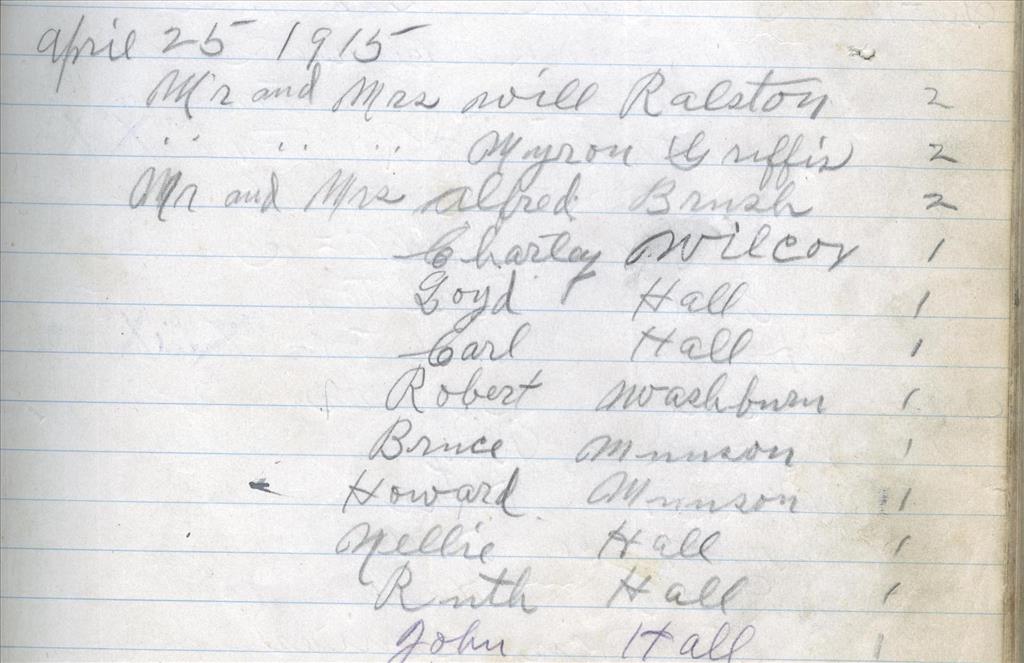 April 25 1915
Mr and Mrs Will Ralston 2
" " " Myron Griffis 2
Mr and Mrs Alfred Brush 2
Charley Wilcox 1
Loyd Hall 1
Carl Hall 1
Robert Washburn 1
Bruce Munson 1
Howard Munson 1
Nellie Hall 1
Ruth Hall 1
John Hall 1